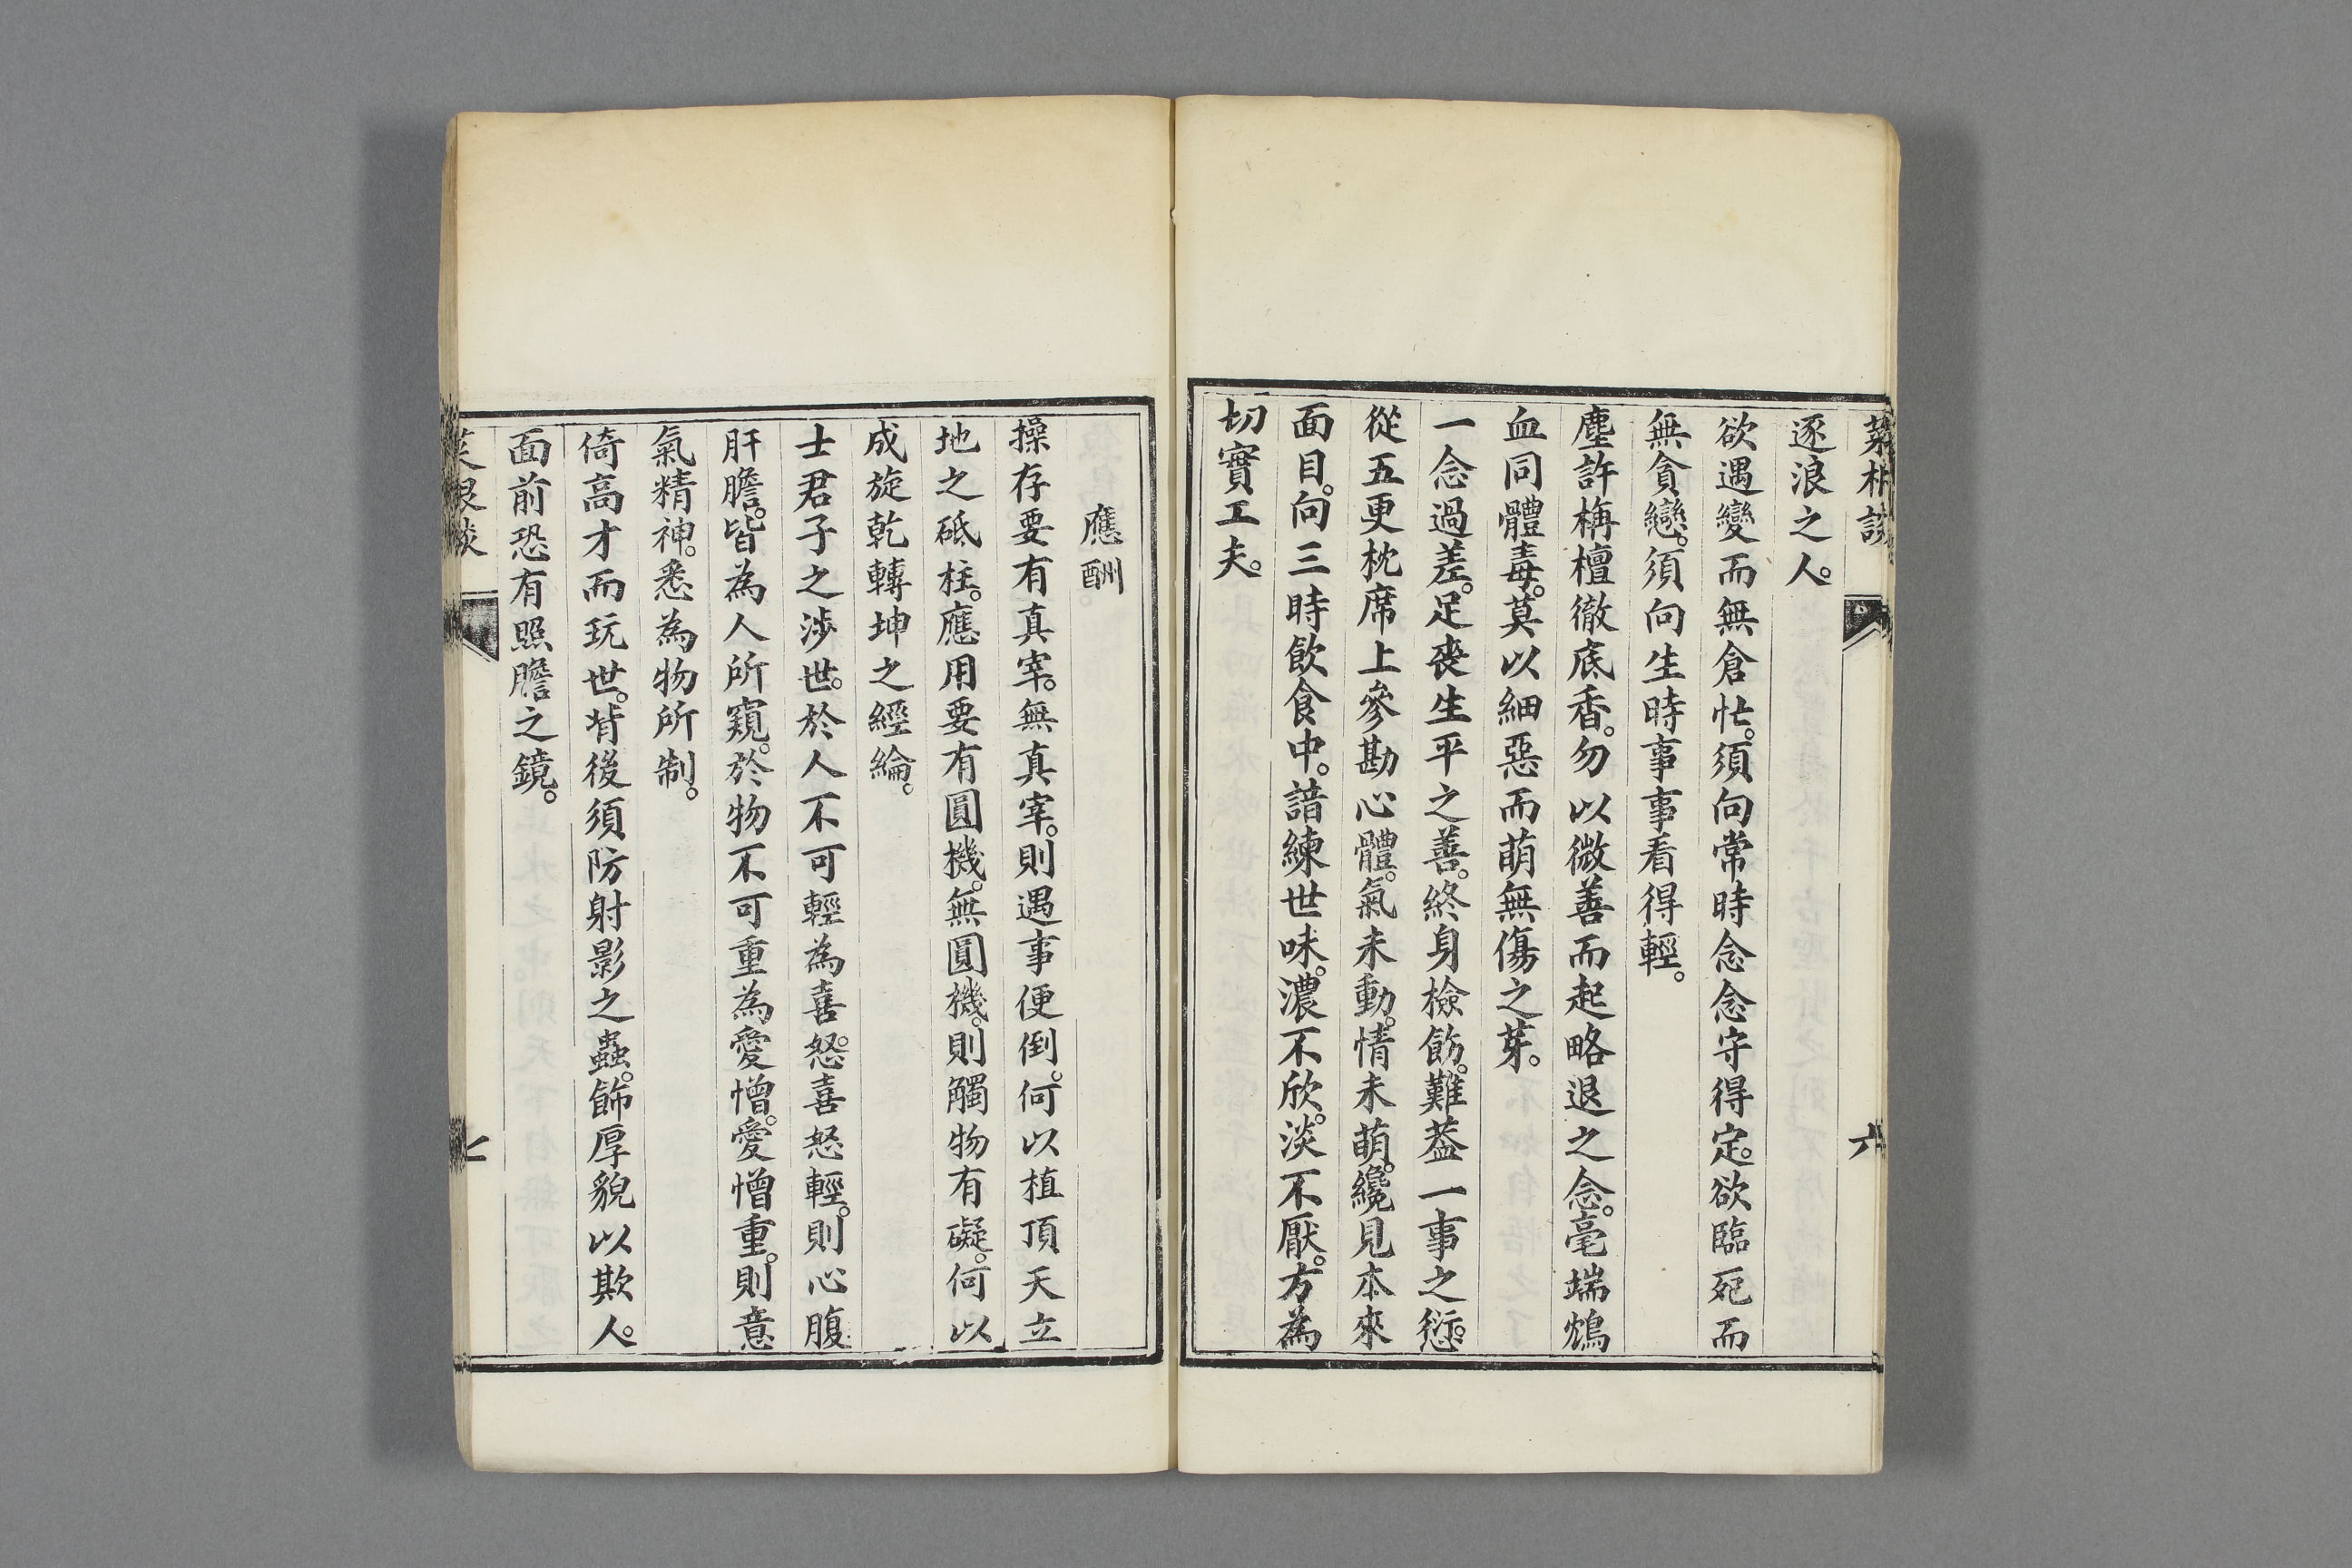 菜根談 六
逐浪之人。
欲遇變而無倉忙。須向常時念念守得定。欲臨死而
無貪戀。須向生時事事看得輕。
塵許栴檀徹底香。勿以微善而起略退之念。毫端鴆
血同體毒。莫以細惡而萌無傷之芽。
一念過差。足喪生平之善。終身檢飭。難葢一事之愆。
從五更枕席上參勘心體。氣未動。情未萌。纔見本來
面目。向三時飲食中。諳練世味。濃不欣。淡不厭。方為
切實工夫。
應酬
操存要有真宰。無真宰。則遇事便倒。何以植頂天立
地之砥柱。應用要有圓機。無圓機。則觸物有礙。何以
成旋乾轉坤之經綸。
士君子之涉世。於人不可輕為喜怒。喜怒輕。則心腹
肝膽。皆為人所窺。於物不可重為愛憎。愛憎重。則意
氣精神。悉為物所制。
倚高才而玩世。背後須防射影之蟲。飾厚貌以欺人。
面前恐有照膽之鏡。
菜根談 七